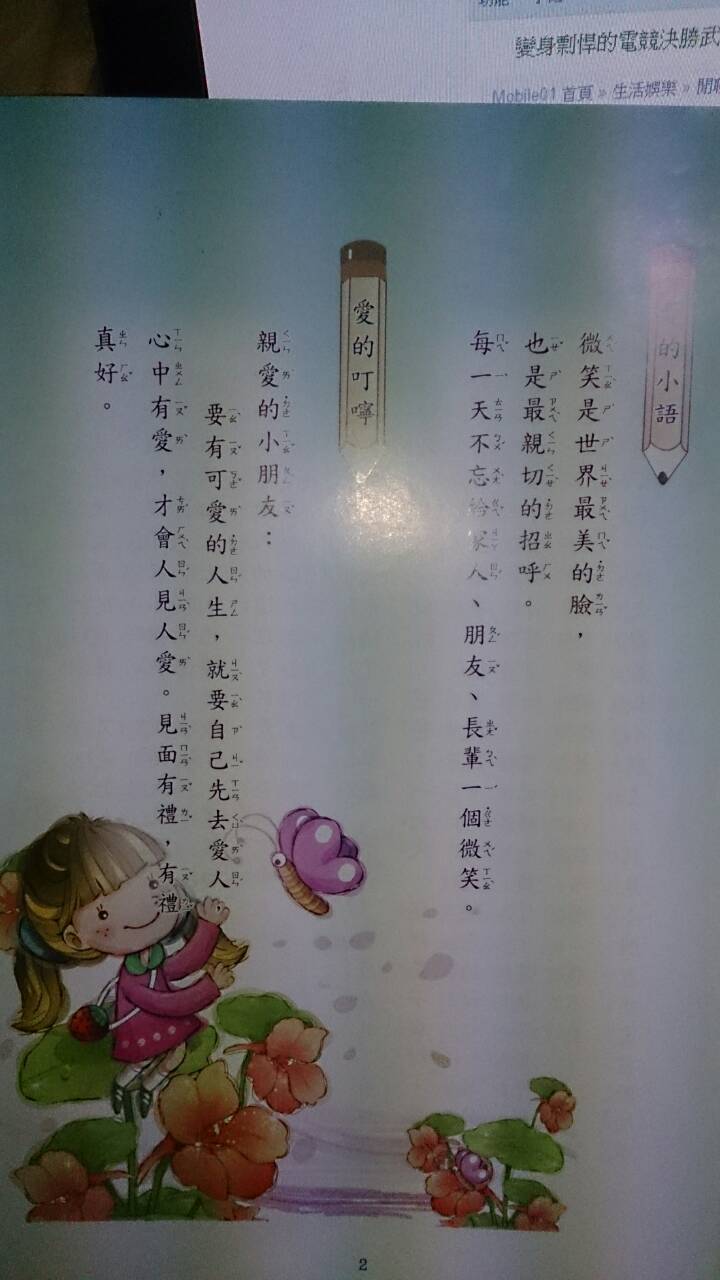 變身剽悍的電競決勝武
Mobile01 首頁 » 生活娛樂 » 閒
的小語
微笑是世界最美的臉，
也是最親切的招呼。
每一天不忘給家人、朋友、長輩一個微笑。
愛的叮嚀
親愛的小朋友：
要有可愛的人生，就要自己先去愛人，
心中有愛，才會人見人愛。見面有禮，有禮
真好。
2